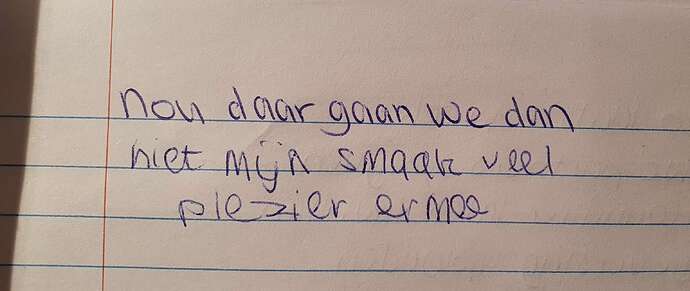 nou daar gaan we dan
niet mijn smaak veel
plezier ermee